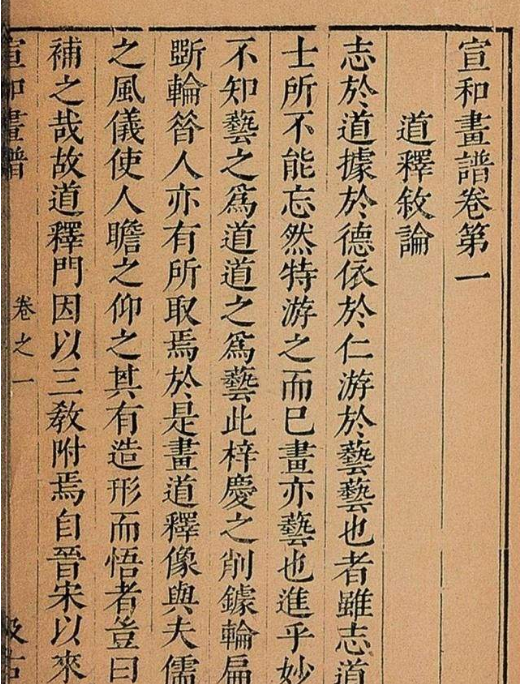 宣和畫譜卷第一
道釋敘論
志於道據於德依於仁游於藝藝也者雖志道
士所不能忘然特游之而已畫亦藝也進乎妙
不知藝之為道道之為藝此梓慶之削鐻輪扁
斲輪昝人亦有所取焉於是畫道釋像與夫儒
之風儀使人瞻之仰之其有造形而悟者豈曰
補之哉故道釋門因以三教附焉自晉宋以來
宣和畫譜
卷之一